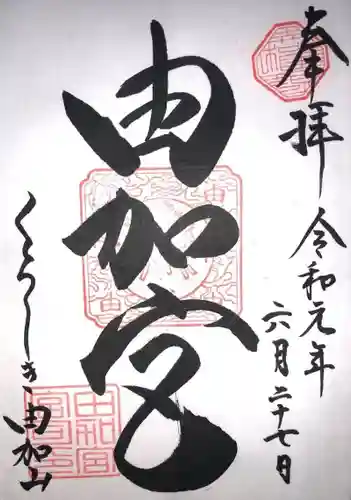 奉拝
令和元年
六月二十七日
由加宮
くらしき由加山